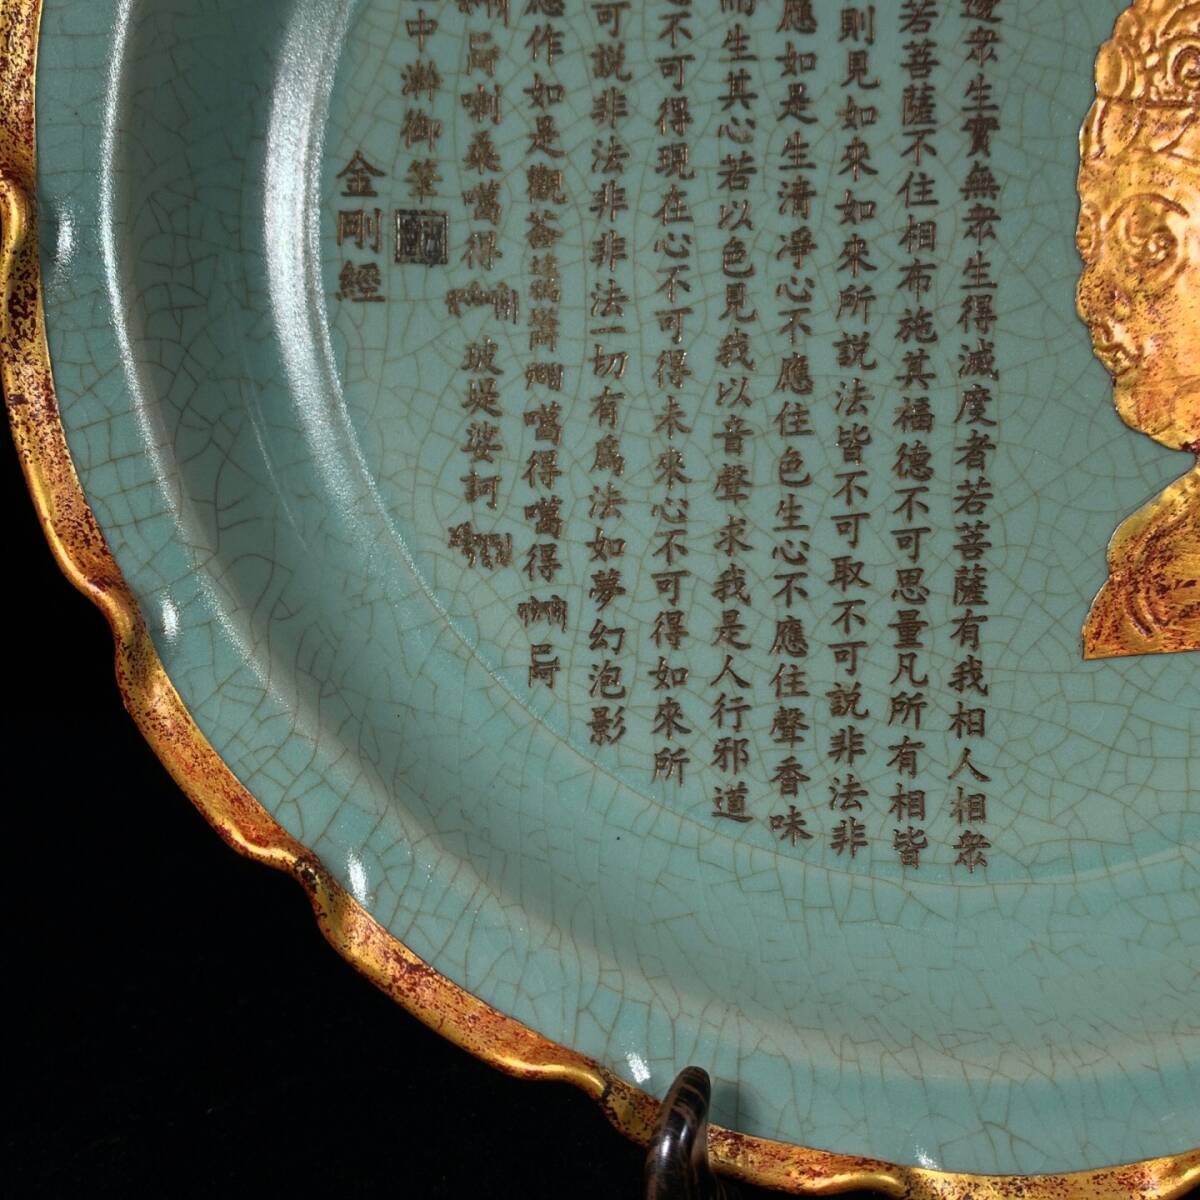 邊衆生實無衆生得滅度者若菩薩有我相人相衆
若菩薩不住相布施其福德不可思量凡所有相皆
則見如來如來所説法皆不可取不可説非法非
應如是生清凈心不應住色生心不應住聲香味
而生其心若以色見我以音聲求我是人行邪道
不可得現在心不可得未來心不可得如來所
可説非法非非法一切有爲法如夢幻泡影
應作如是觀 噶得噶得
喇桑噶得 玻堤娑訶
中 御筆
金剛經